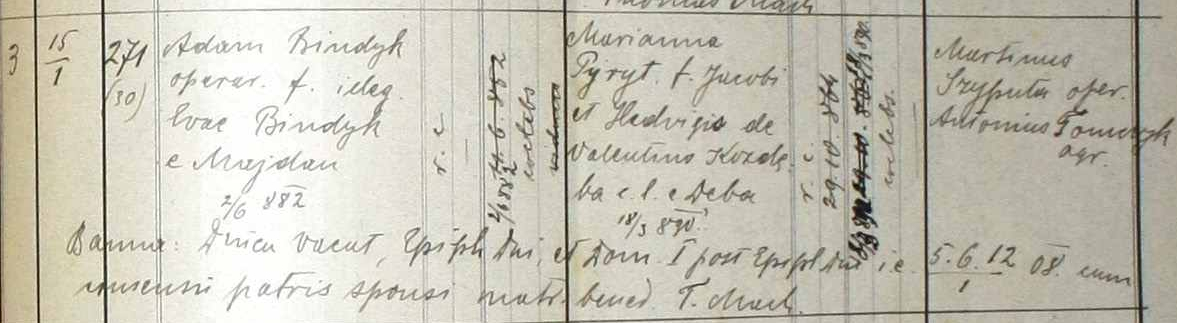 3
15
1
271
(30)
Adam Bindyk
operar. f. illeg.
Evae Bindyk
e Majdan
2/6 882
r. c
coelebs
Marianna
Pyryt f. Jacobi
et Hedvigis de
Valentino Kozdę
ba c. l. e Deba
18/3 890.
r. c.
29.10.864
coelebs.
Martinus
Szypuła oper.
Antonius Tomczyk
agr.
Banna: Dnica vacat, Epiph Dni, et Dom. I post Epiph Dni i. e. 5. 6. 12 08. cum
1
consensu patris sponsi matr. bened. T.